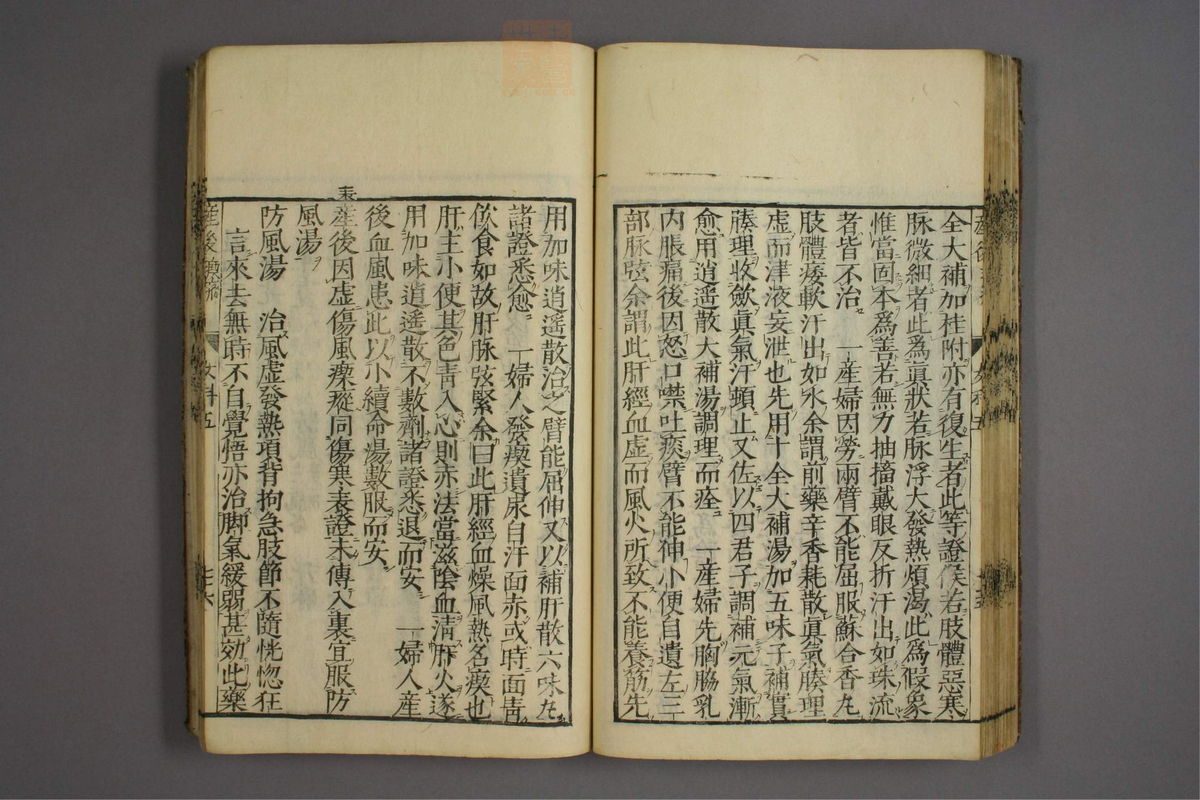 全大補加桂附亦有復生者此等證候若肢體惡寒
脉微細者此為眞狀若脉浮大發熱煩渴此為假象
惟當固本為善若無力抽搐戴眼反折汗出如珠流
者皆不治 一産婦因勞兩臂不能屈服蘇合香丸
肢體痿軟汗出如水余謂前藥辛香耗散眞氣腠理
虚而津液妄泄也先用十全大補湯加五味子補實
腠理收斂眞氣汗頓止又佐以四君子調補元氣漸
愈用逍遥散大補湯調理而痊 一産婦先胸脇乳
内脹痛後因怒口噤吐痰臂不能伸小便自遺左三
部脉弦余謂此肝經血虚而風火所致不能養筋先
用加味逍遥散治之臂能屈伸又以補肝散六味丸
諸證悉愈 一婦人發瘈遺尿自汗面赤或時面青
飲食如故肝脉弦緊余曰此肝經血燥風熱名瘈也
肝主小便其色青入心則赤法當滋陰血清肝火遂
用加味逍遥散不數劑諸證悉退而安 一婦人産
後血風患此以小續命湯數服而安
表
産後因虚傷風瘈瘲同傷寒表證未傳入裏宜服防
風湯
防風湯 治風虚發熱項背拘急肢節不隨恍惚狂
言來去無時不自覺悟亦治脚氣緩弱甚効此藥
女科五